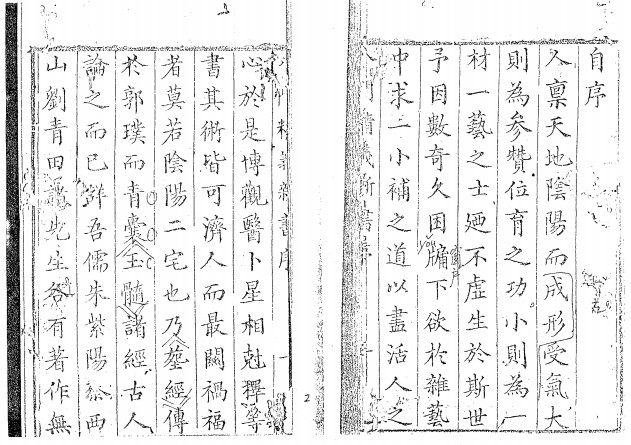 自序
人稟天地陰陽而成形受氣大
則為參贊位育之功小則為一
材一藝之士廼不虛生於斯世
予因數奇久困牖下欲於雜藝
you
窗户
中求二小補之道以盡活人之
2
心於是博觀醫卜星相尅擇等
書其術皆可濟人而最關禍福
者莫若陰陽二宅也乃塟經傳
於郭璞而青囊玉髓諸經古人
論之而已詳吾儒朱紫陽蔡西
山劉青田諸先生各有著作無